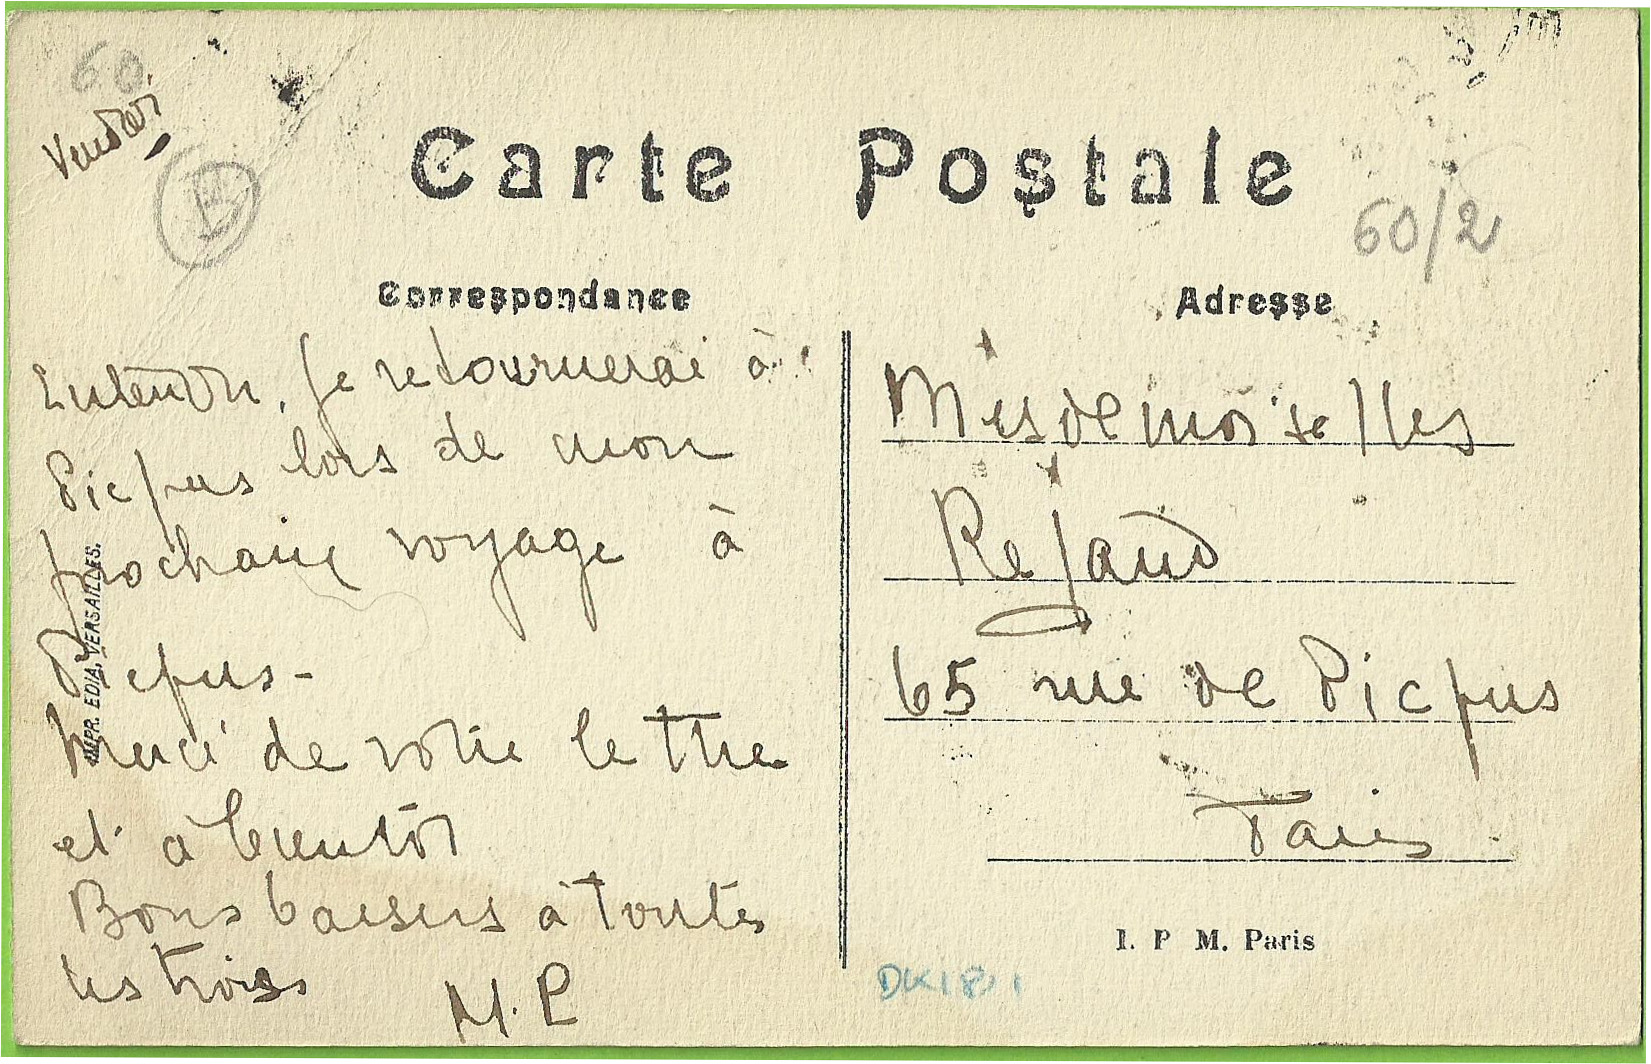 60
Vendredi
Carte Postale
60/2
Correspondance
Adresse
Entendu, je retournerai à
Picpus lors de mon
prochain voyage à
Picpus-
Merci de votre lettre
et à bientôt
Bons baisers à toutes
les trois
M. P
IMPR. EDIA, VERSAILLES.
Mesdemoiselles
65 rue de Picpus
Paris
I. P M. Paris